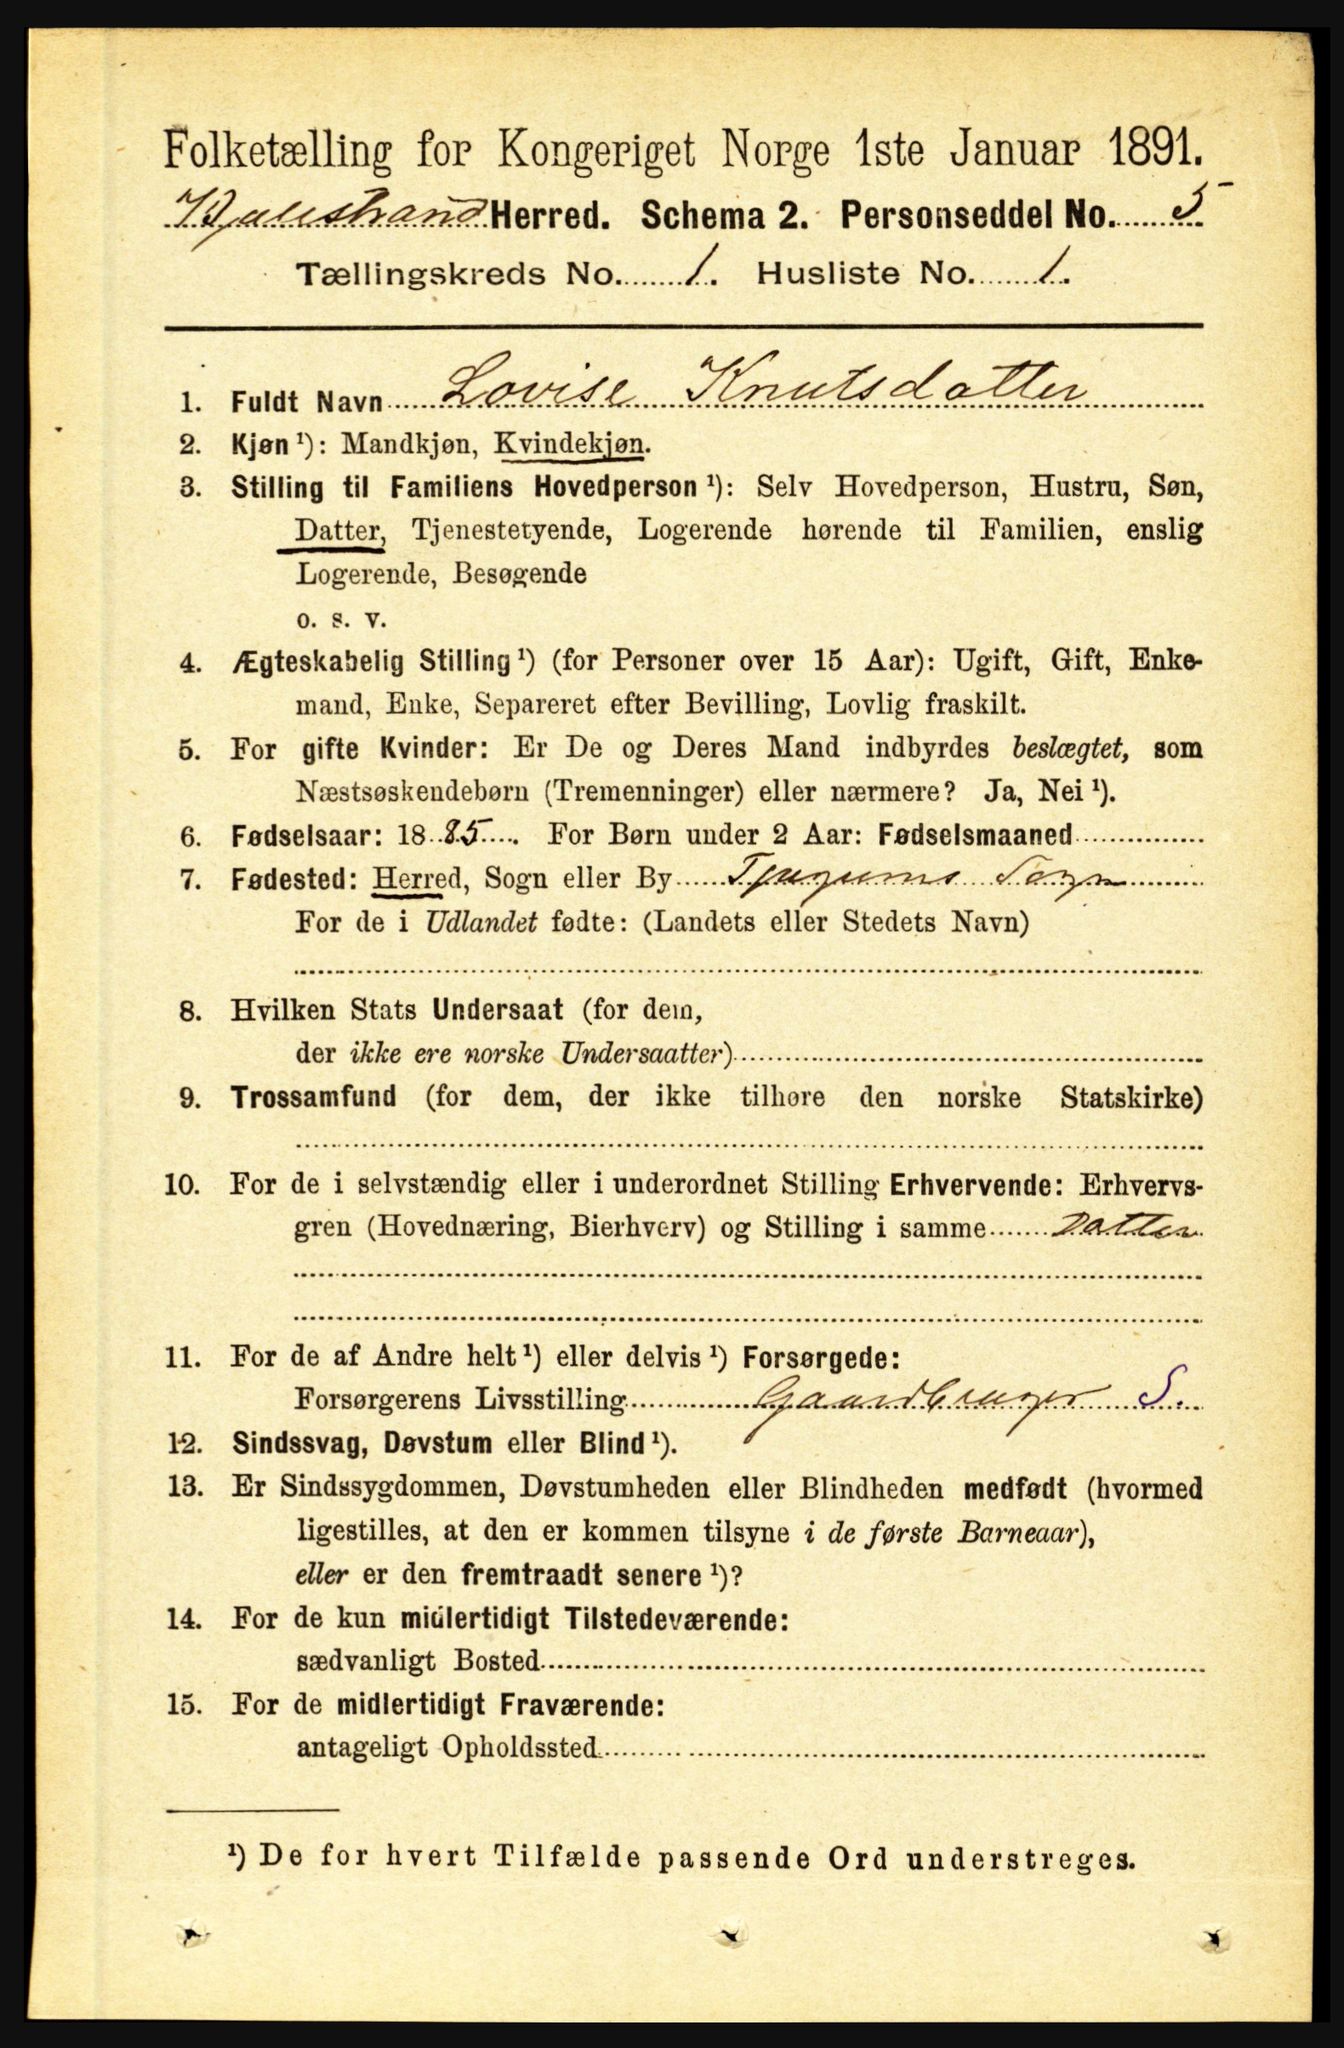 Folketælling for Kongeriget Norge 1ste Januar 1891.
Balestrand Herred. Schema 2. Personseddel No. 5
Tællingskreds No. 1. Husliste No. 1.
1. Fuldt Navn Lovise Knutsdatter
2. Kjøn ¹): Mandkjøn, Kvindekjøn.
3. Stilling til Familiens Hovedperson ¹): Selv Hovedperson, Hustru, Søn,
Datter, Tjenestetyende, Logerende hørende til Familien, enslig
Logerende, Besøgende
o. s. v.
4. Ægteskabelig Stilling ¹) (for Personer over 15 Aar): Ugift, Gift, Enke-
mand, Enke, Separeret efter Bevilling, Lovlig fraskilt.
5. For gifte Kvinder: Er De og Deres Mand indbyrdes beslægtet, som
Næstsøskendebørn (Tremenninger) eller nærmere? Ja, Nei ¹).
6. Fødselsaar: 1885. For Børn under 2 Aar: Fødselsmaaned
7. Fødested: Herred, Sogn eller By Tjugums Sogn
For de i Udlandet fødte: (Landets eller Stedets Navn)
8. Hvilken Stats Undersaat (for dem,
der ikke ere norske Undersaatter)
9. Trossamfund (for dem, der ikke tilhøre den norske Statskirke)
10. For de i selvstændig eller i underordnet Stilling Erhvervende: Erhvervs-
gren (Hovednæring, Bierhverv) og Stilling i samme Datter
11. For de af Andre helt ¹) eller delvis ¹) Forsørgede:
Forsørgerens Livsstilling Gaardbruger S.
12. Sindssvag, Døvstum eller Blind ¹).
13. Er Sindssygdommen, Døvstumheden eller Blindheden medfødt (hvormed
ligestilles, at den er kommen tilsyne i de første Barneaar),
eller er den fremtraadt senere ¹)?
14. For de kun midlertidigt Tilstedeværende:
sædvanligt Bosted
15. For de midlertidigt Fraværende:
antageligt Opholdssted
¹) De for hvert Tilfælde passende Ord understreges.